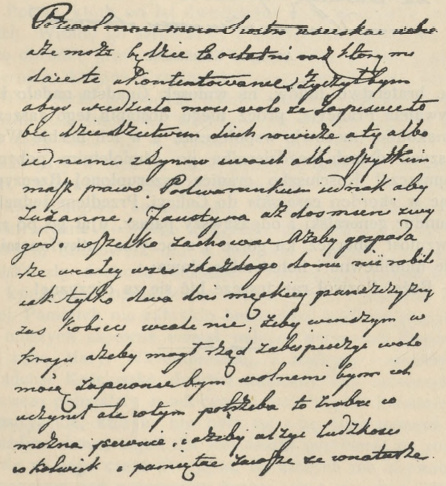 Pozwol moia Siostro uscisk
aże może będzie to ostatni raz ktorym
daie te ukontentowanie, Życzyłbym
abys wiedziała moią wolę że zapisuie to
bie dziedzictwem Siechnowicze a ty albo
iednemu z Synow swoich albo wszytkim
masz prawo Pod warunkiem iednak aby
Zuzanne i Faustyna aż do smierci zwy
god. wszelko zachować Ażeby gospoda
rze w całey wsi z każdego domu nie robili
iak tylko dwa dni męskiey panszczyzny
zas kobiecy wcale nie, żeby w inszym
kraiu ażeby mogł rząd zabespieczyc wolo
moią zapewne bym wolnemi bym ich
uczynił ale w tym potrzeba to zrobic co
można pewnie, i ażeby ulżyc ludzkosci
w kolwiek i pamiętac zawsze że w naturze